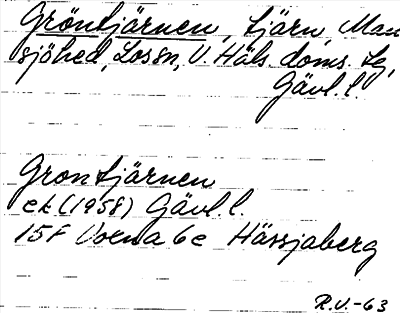 Gröntjärnen, tjärn, Man
sjöhed, Lossn, V. Häls. doms. tg,
Gävl. l.
Grontjärnen
ek (1958) Gävl. l.
15F Voxna 6e Hässjaberg
R.V.-63